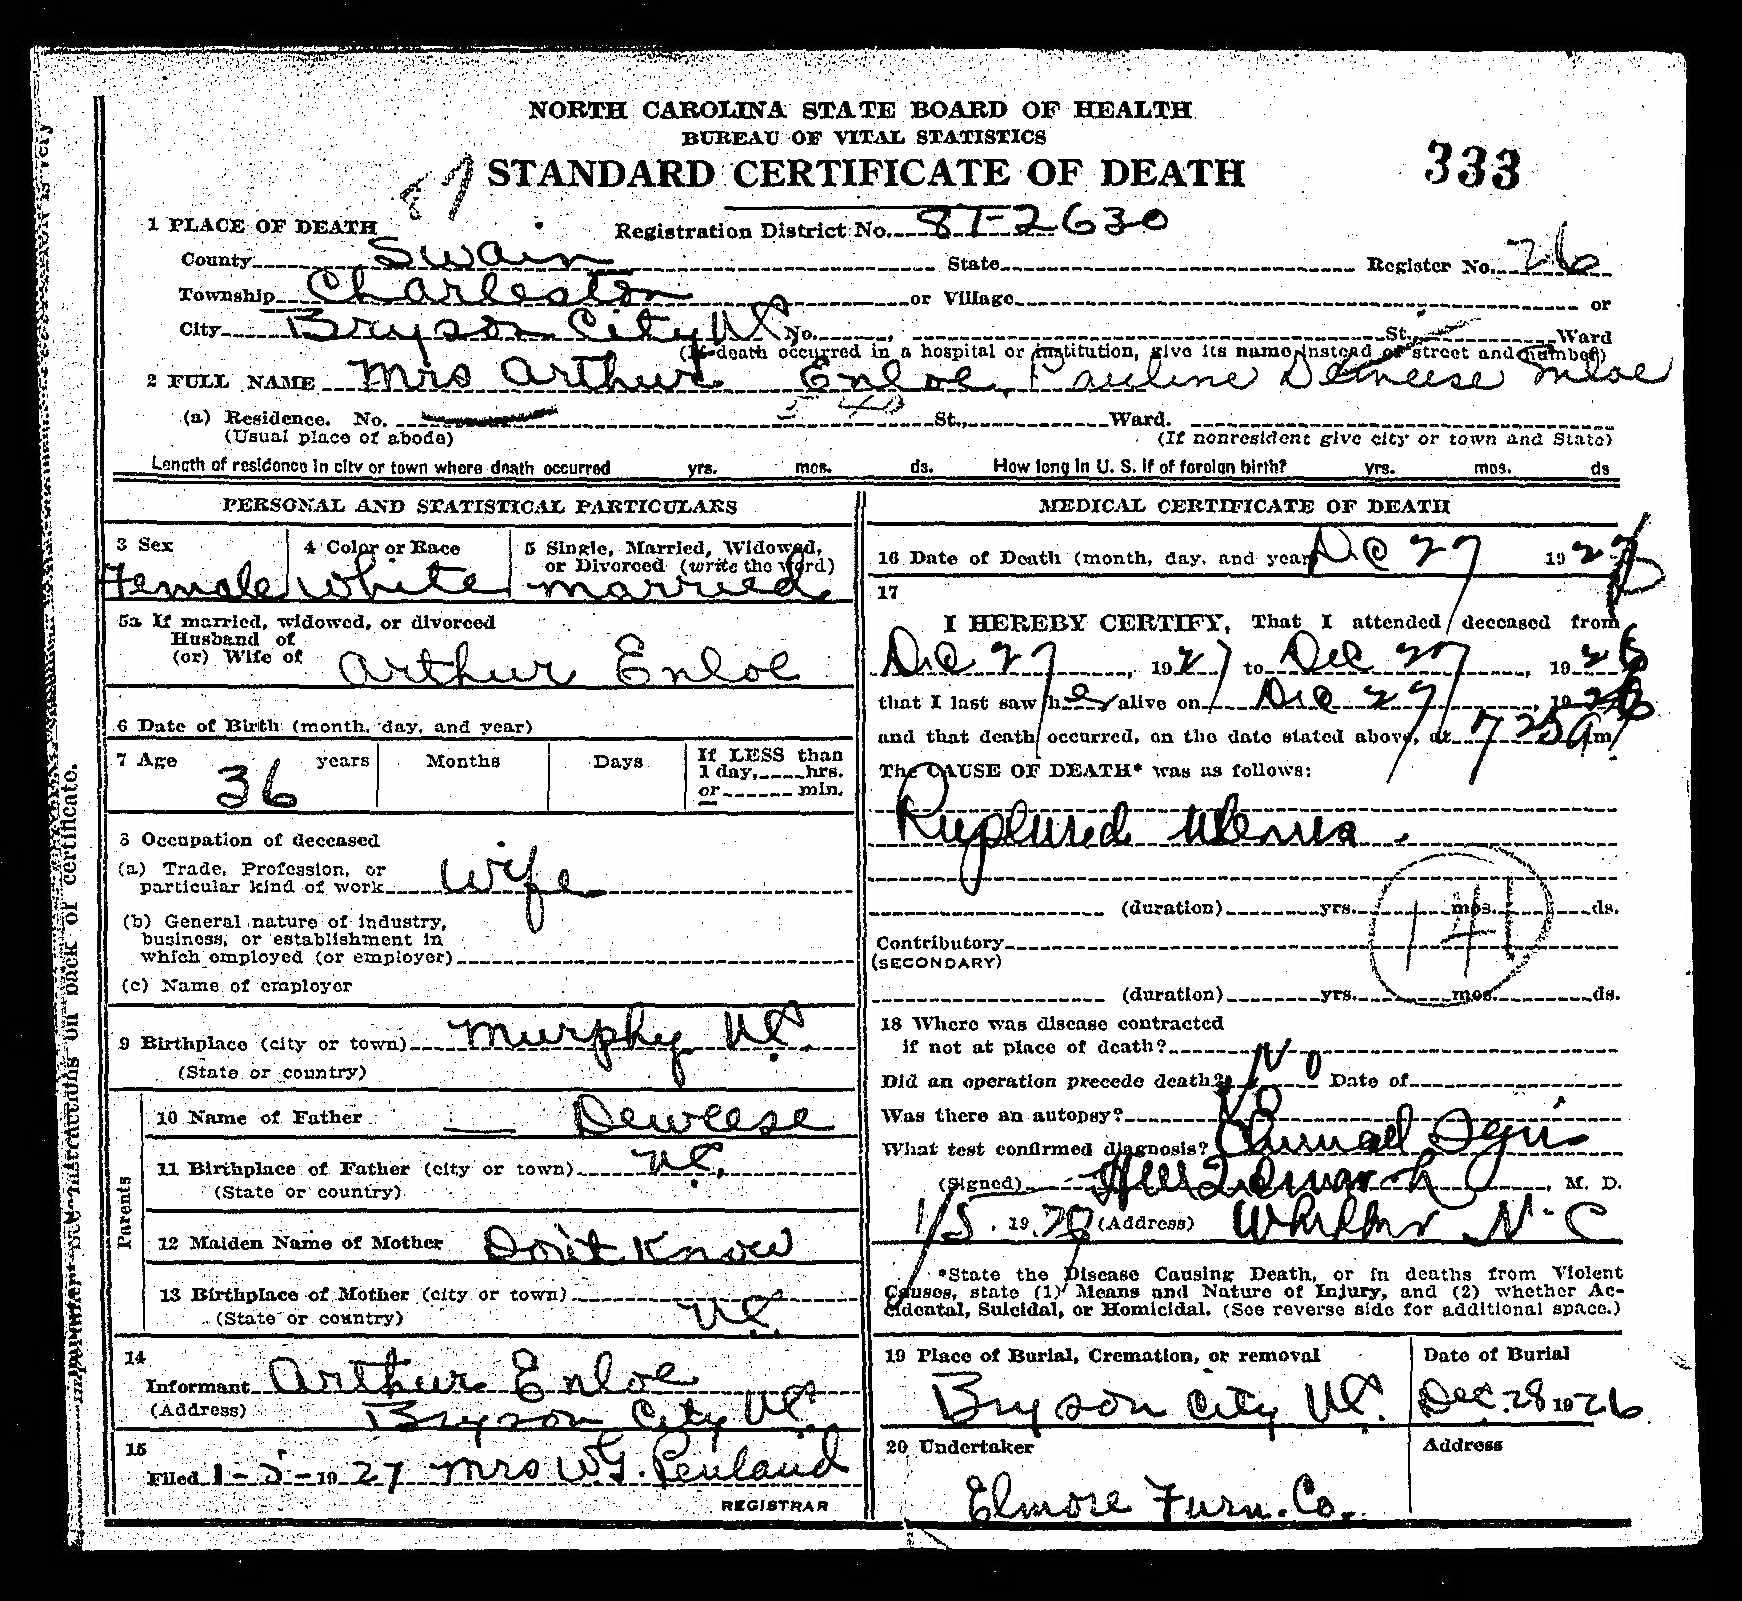 NORTH CAROLINA STATE BOARD OF HEALTH
BUREAU OF VITAL STATISTICS
87 STANDARD CERTIFICATE OF DEATH 333
1 PLACE OF DEATH Registration District No. 87-2630
County Swain State Register No. 26
Township Charleston or Village or
City Bryson City N.C. No. , St., Ward
(If death occurred in a hospital or institution, give its name instead of street and number)
2 FULL NAME Mrs Arthur Enloe, Pauline Deweese Enloe
(a) Residence. No. 540 St., Ward.
(Usual place of abode) (If nonresident give city or town and State)
Length of residence in city or town where death occurred yrs. mos. ds. How long in U. S. if of foreign birth? yrs. mos. ds
PERSONAL AND STATISTICAL PARTICULARS
3 Sex
Female
4 Color or Race
White
5 Single, Married, Widowed,
or Divorced (write the word)
married
5a If married, widowed, or divorced
Husband of
(or) Wife of Arthur Enloe
6 Date of Birth (month, day, and year)
7 Age 36 years Months Days
If LESS than
1 day, hrs.
or min.
8 Occupation of deceased
(a) Trade, Profession, or
particular kind of work Wife
(b) General nature of industry,
business, or establishment in
which employed (or employer)
(c) Name of employer
9 Birthplace (city or town) Murphy N.C.
(State or country)
Parents
10 Name of Father — Deweese
11 Birthplace of Father (city or town) N.C.
(State or country)
12 Maiden Name of Mother Don't Know
13 Birthplace of Mother (city or town)
(State or country) N.C.
14
Informant Arthur Enloe
(Address) Bryson City N.C.
15
Filed 1-5-1927 Mrs W.G. Penland
REGISTRAR
MEDICAL CERTIFICATE OF DEATH
16 Date of Death (month, day, and year) Dec 27 192
17
I HEREBY CERTIFY, That I attended deceased from
Dec 27, 1927 to Dec 27, 1926
that I last saw her alive on Dec 27, 1926
and that death occurred, on the date stated above, at 7 25 a m
The CAUSE OF DEATH* was as follows:
Ruptured Uterus.
(duration) yrs. mos. ds.
141
Contributory
(SECONDARY)
(duration) yrs. mos. ds.
18 Where was disease contracted
if not at place of death?
Did an operation precede death? No Date of
Was there an autopsy? No
What test confirmed diagnosis?
(Signed) , M. D.
1/5, 19 (Address) Whittier N.C
*State the Disease Causing Death, or in deaths from Violent
Causes, state (1) Means and Nature of Injury, and (2) whether Ac-
cidental, Suicidal, or Homicidal. (See reverse side for additional space.)
19 Place of Burial, Cremation, or removal
Bryson City N.C.
Date of Burial
Dec. 28 1926
20 Undertaker
Elmore Furn. Co.
Address
instructions on back of certificate.